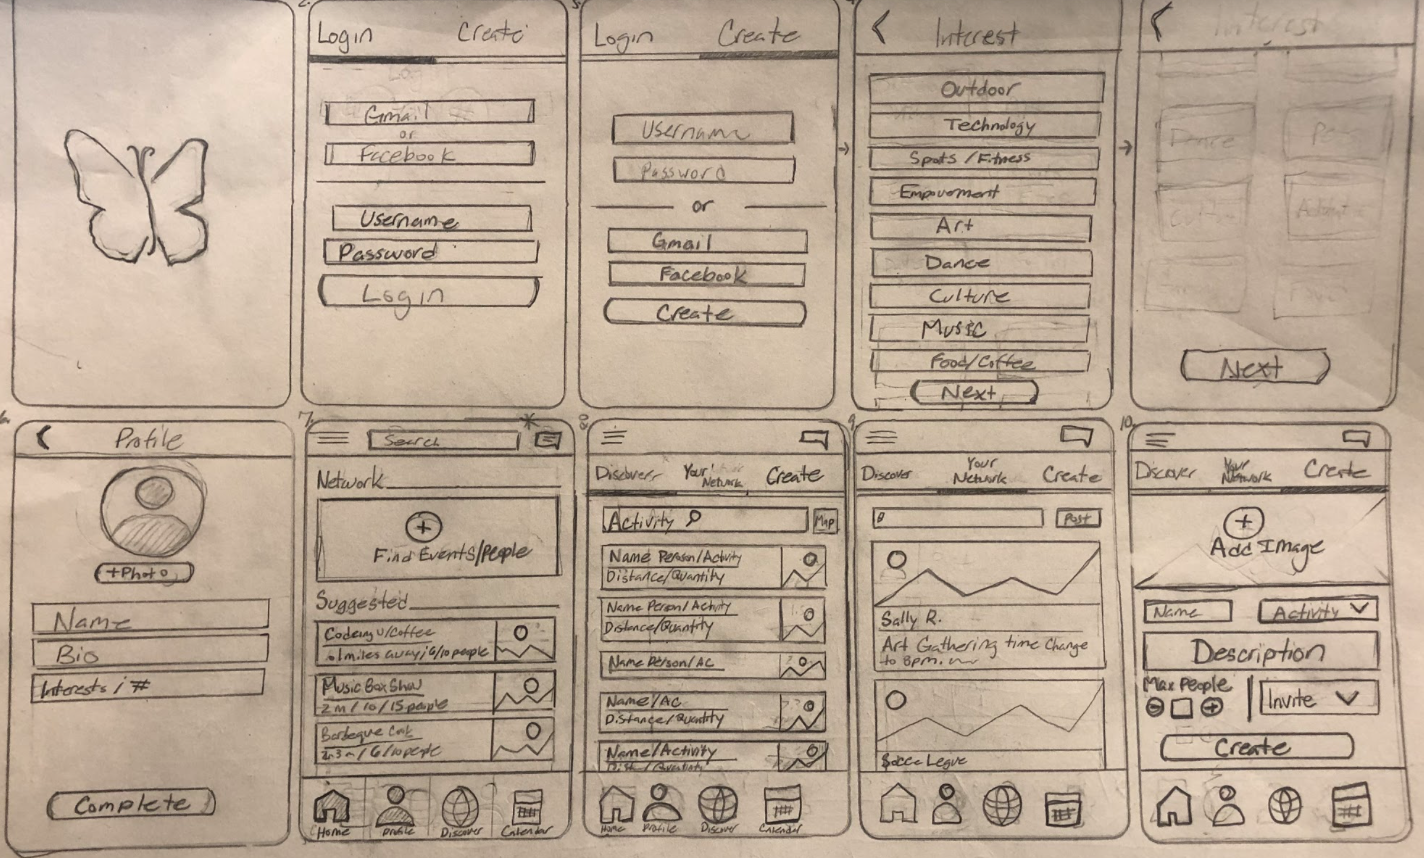 2.
Login Create
Gmail
or
Facebook
Username
Password
Login
3.
Login Create
Username
Password
or
Gmail
Facebook
Create
Interest
Outdoor
Technology
Spots / Fitness
Art
Dance
Culture
Music
Food/Coffee
Next
Interest
Dance
Next
6.
Profile
+Photo
Name
Bio
Interests / #
Complete
7.
Search
Network
Find Events/People
Suggested
Coding w/Coffee
.1 miles away / 6/10 people
Music Box Show
2 m / 10 / 15 people
2.3 m / 6/10 people
Home Profile Discover Calendar
8.
Discovers Your Network Create
Activity Map
Name Person/Activity
Distance/Quantity
Name Person/Activity
Distance/Quantity
Name Person/AC
Name/AC
Distance/Quantity
Name/Activity
Home Profile Discover Calendar
9.
Discover Your Network Create
Post
Sally R.
Art Gathering time change
to 8pm.
10.
Discover Your Network Create
Add Image
Name Activity
Description
Max People
Invite
Create